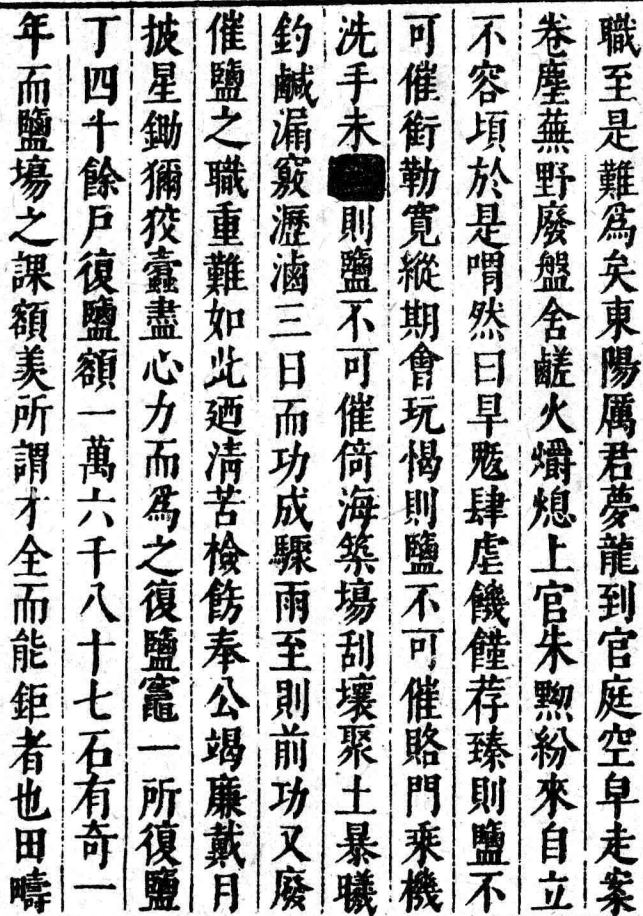 職至是難爲矣東陽厲君夢龍到官庭空皁走案
卷塵蕪野廢盤舍鹺火爝熄上官朱黥紛來自立
不容頃於是喟然曰旱魃肆虐饑饉荐臻則鹽不
可催銜勒寛縱期會玩愒則鹽不可催賂門乘機
洗手未則鹽不可催倚海築塲刮壤聚土暴曦
釣鹹漏竅瀝滷三日而功成驟雨至則前功又廢
催鹽之職重難如此廼淸苦檢飭奉公竭廉戴月
披星鋤獮狡蠹盡心力而爲之復鹽竈一所復鹽
丁四十餘戸復鹽額一萬六千八十七石有奇一
年而鹽塲之課額羨所謂才全而能鉅者也田疇